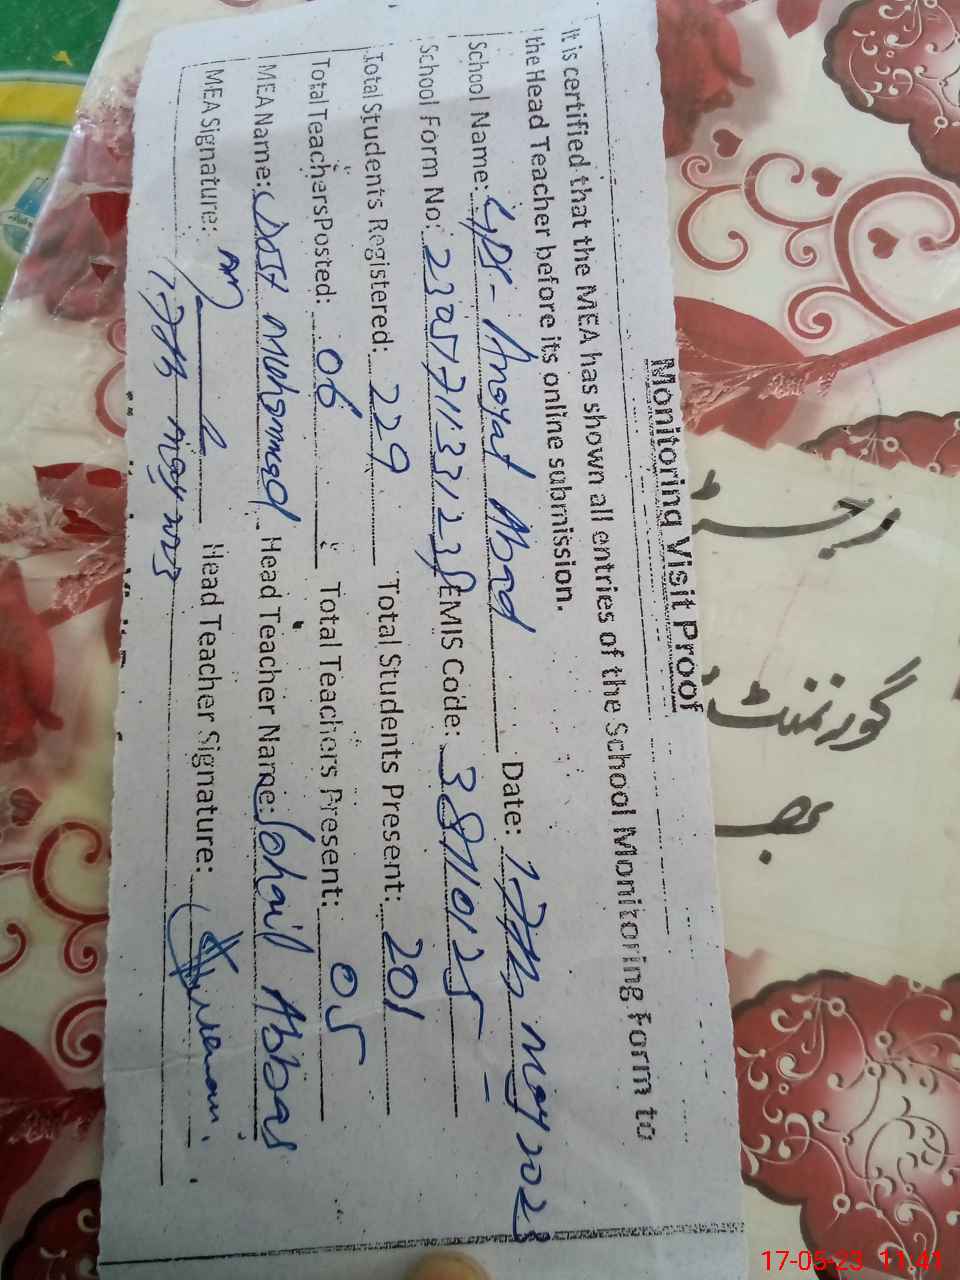 Monitoring Visit Proof
It is certified that the MEA has shown all entries of the School Monitoring Form to
the Head Teacher before its online submission.
School Name: GPS- Anayat Abad Date: 17th May 2023
School Form No: EMIS Code: 38710125
Total Students Registered: 229 Total Students Present: 201
Total TeachersPosted: 06 Total Teachers Present: 05
MEA Name: Dost Mohammad Head Teacher Name: Sohail Abbas
MEA Signature: Head Teacher Signature:
17th May 2023
رجسٹر
گورنمنٹ
17-05-23 11:41